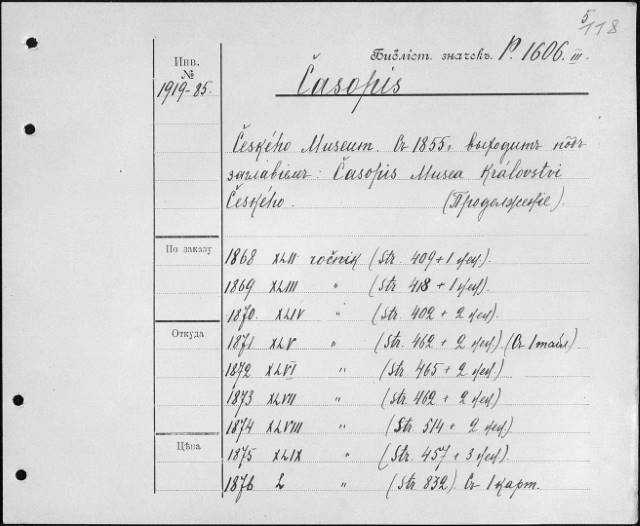 5/118
Инв.
№
1919-85.
Библіот. значекъ. P. 1606. III.
Časopis
Českého Museum. Съ 1855 г. выходитъ подъ
заглавіемъ: Časopis Musea Království
Českého. (Продолженіе).
По заказу
1868 XLII ročnik (Str. 409 + 1 нен.).
1869 XLIII " (Str. 418 + 1 нен).
1870. XLIV " (Str. 402 + 2 нен)
Откуда
1871 XLV " (Str. 462 + 2 нен). (Съ 1 табл).
1872 XLVI " (Str. 465 + 2 нен)
1873 XLVII " (Str. 462 + 2 нен)
1874 XLVIII " (Str. 514 + 2 нен)
Цѣна
1875 XLIX " (Str. 457 + 3 нен).
1876 L " (Str 832) Съ 1 карт.